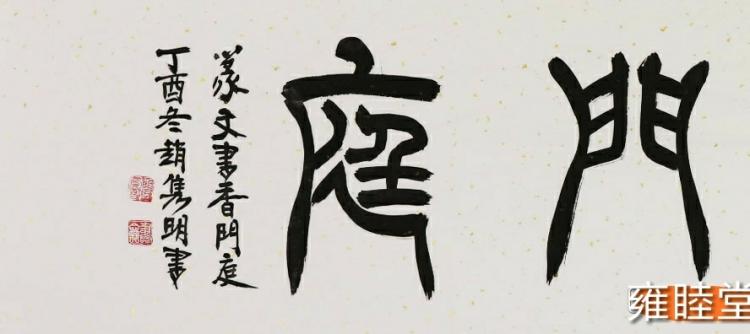 門庭
篆文書香門庭
丁酉冬趙雋明書
雍睦堂